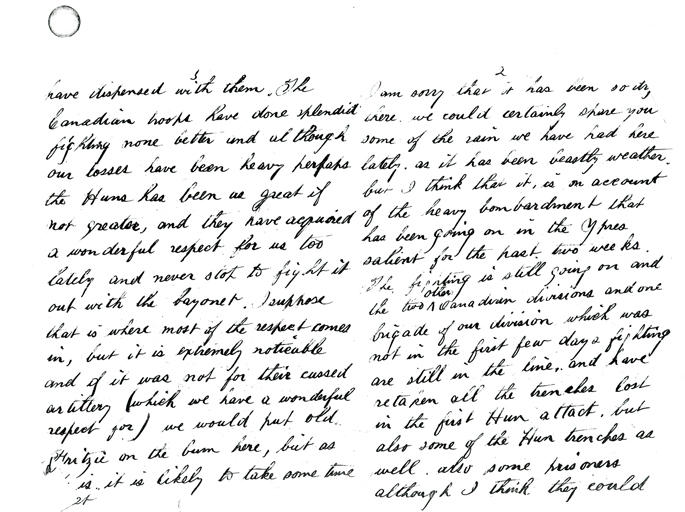 3
have dispensed with them. The
Canadian troops have done splendid
fighting none better and although
our losses have been heavy perhaps
the Huns has been as great if
not greater, and they have acquired
a wonderful respect for us too
lately and never stop to fight it
out with the bayonet. I suppose
that is where most of the respect comes
in, but it is extremely noticable
and if it was not for their cussed
artillery (which we have a wonderful
respect for) we would put old
Fritzie on the bum here, but as
it is it is likely to take some time
2
I am sorry that it has been so dry
there. we could certainly spare you
some of the rain we have had here
lately. as it has been beastly weather.
but I think that it, is on account
of the heavy bombardment that
has been going on in the Ypres
salient for the past two weeks.
The fighting is still going on and
the two other Canadian divisions and one
brigade of our division which was
not in the first few days fighting
are still in the line, and have
retaken all the trenches lost
in the first Hun attact, but
also some of the Hun trenches as
well. also some prisoners
although I think they could